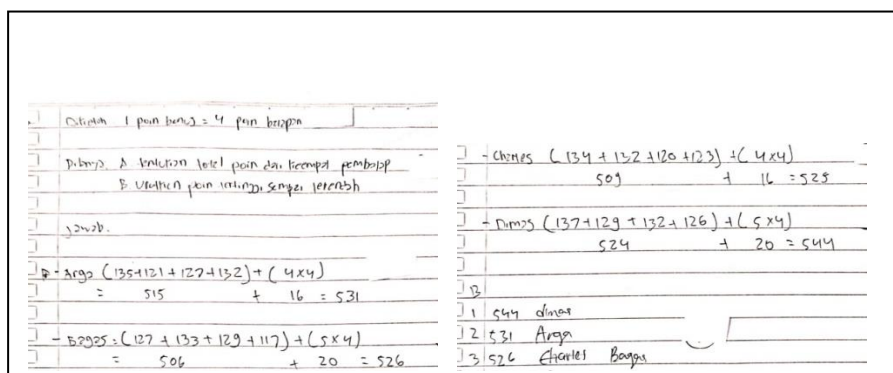 1 poin bonus = 4 poin balapan
A tentukan total poin dari keempat pembalap
B. Urutkan poin tertinggi sampai terendah
Jawab.
- Arga (135+121+127+132)+(4x4)
= 515 + 16 = 531
- Bagas = (127 + 133 + 129 + 117) + (5x4)
= 506 + 20 = 526
- Charles (134 + 132 + 120 + 123) + (4x4)
509 + 16 = 525
- Dimas (137+129 + 132 + 126) + (5x4)
524 + 20 = 544
B
1 544 dimas
2 531 Arga
3 526 Charles Bagas